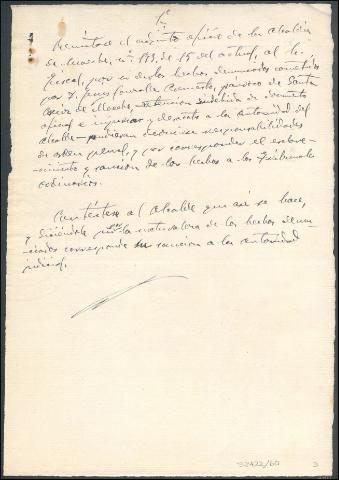 Remítase el adjunto oficio de la Alcaldía
de Moeche, nº 173, de 15 del actual, al Sr.
Fiscal, por si de los hechos denunciados cometidos
por D. párroco de Santa
de Moeche, de documento
oficial e injurias y desacato a la autoridad del
alcalde pudieran derivarse responsabilidades
de orden penal, y por corresponder el
y sanción de los hechos a los Tribunales
ordinarios.
Contéstese al Alcalde que así se hace,
y diciéndole que la naturaleza de los hechos denun-
ciados corresponde su sanción a la autoridad
judicial.
32422/60
3